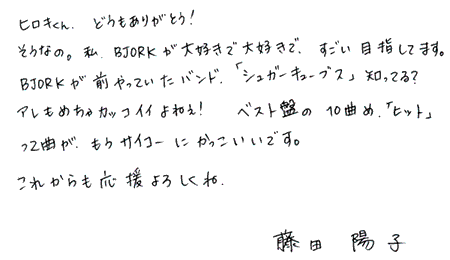 ヒロキくん、どうもありがとう!
そうなの。私、BJORKが大好きで大好きで、すごい目指してます。
BJORKが前やっていたバンド、「シュガーキューブス」知ってる?
アレもめちゃカッコイイよねぇ! ベスト盤の10曲め、「ヒット」
って曲が、もうサイコーにかっこいいです。
これからも応援よろしくね。
藤田 陽子